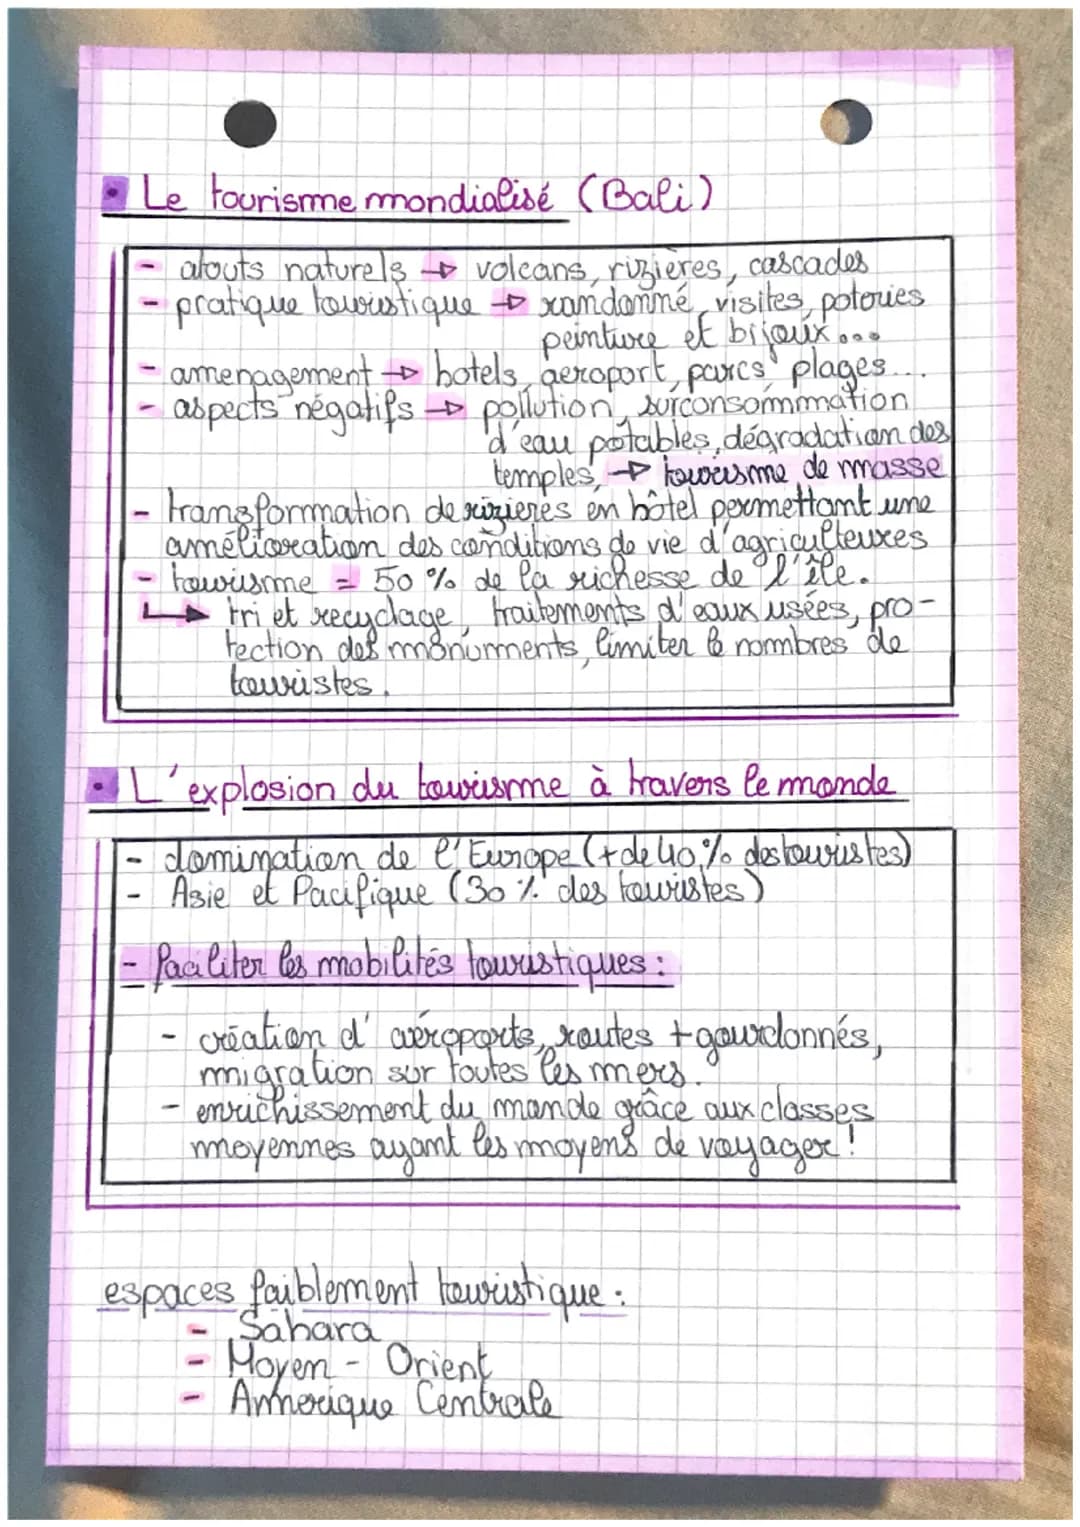 Le tourisme mondialisé (Bali)
- atouts naturels → volcans, rizières, cascades
- pratique touristique → randonné, visites, poteries
peinture et bijoux...
- amenagement → hotels, aeroport, parcs, plages...
- aspects négatifs → pollution, surconsommation
d'eau potables, dégradation des
temples, → tourisme de masse
- transformation de rizieres en hôtel permettant une
amélioration des conditions de vie d'agriculteures
- tourisme = 50 % de la richesse de l'île.
↳ tri et recyclage, traitements d'eaux usées, pro-
tection des monuments, limiter le nombres de
touristes.
L'explosion du tourisme à travers le monde
- domination de l'Europe (+ de 40 % des touristes)
- Asie et Pacifique (30 % des touristes)
- faciliter les mobilités touristiques :
- création d'aéroports, routes + gourdonnés,
migration sur toutes les mers.
- enrichissement du monde grâce aux classes
moyennes ayant les moyens de voyager !
espaces faiblement touristique :
- Sahara
- Moyen - Orient
- Amerique Centrale